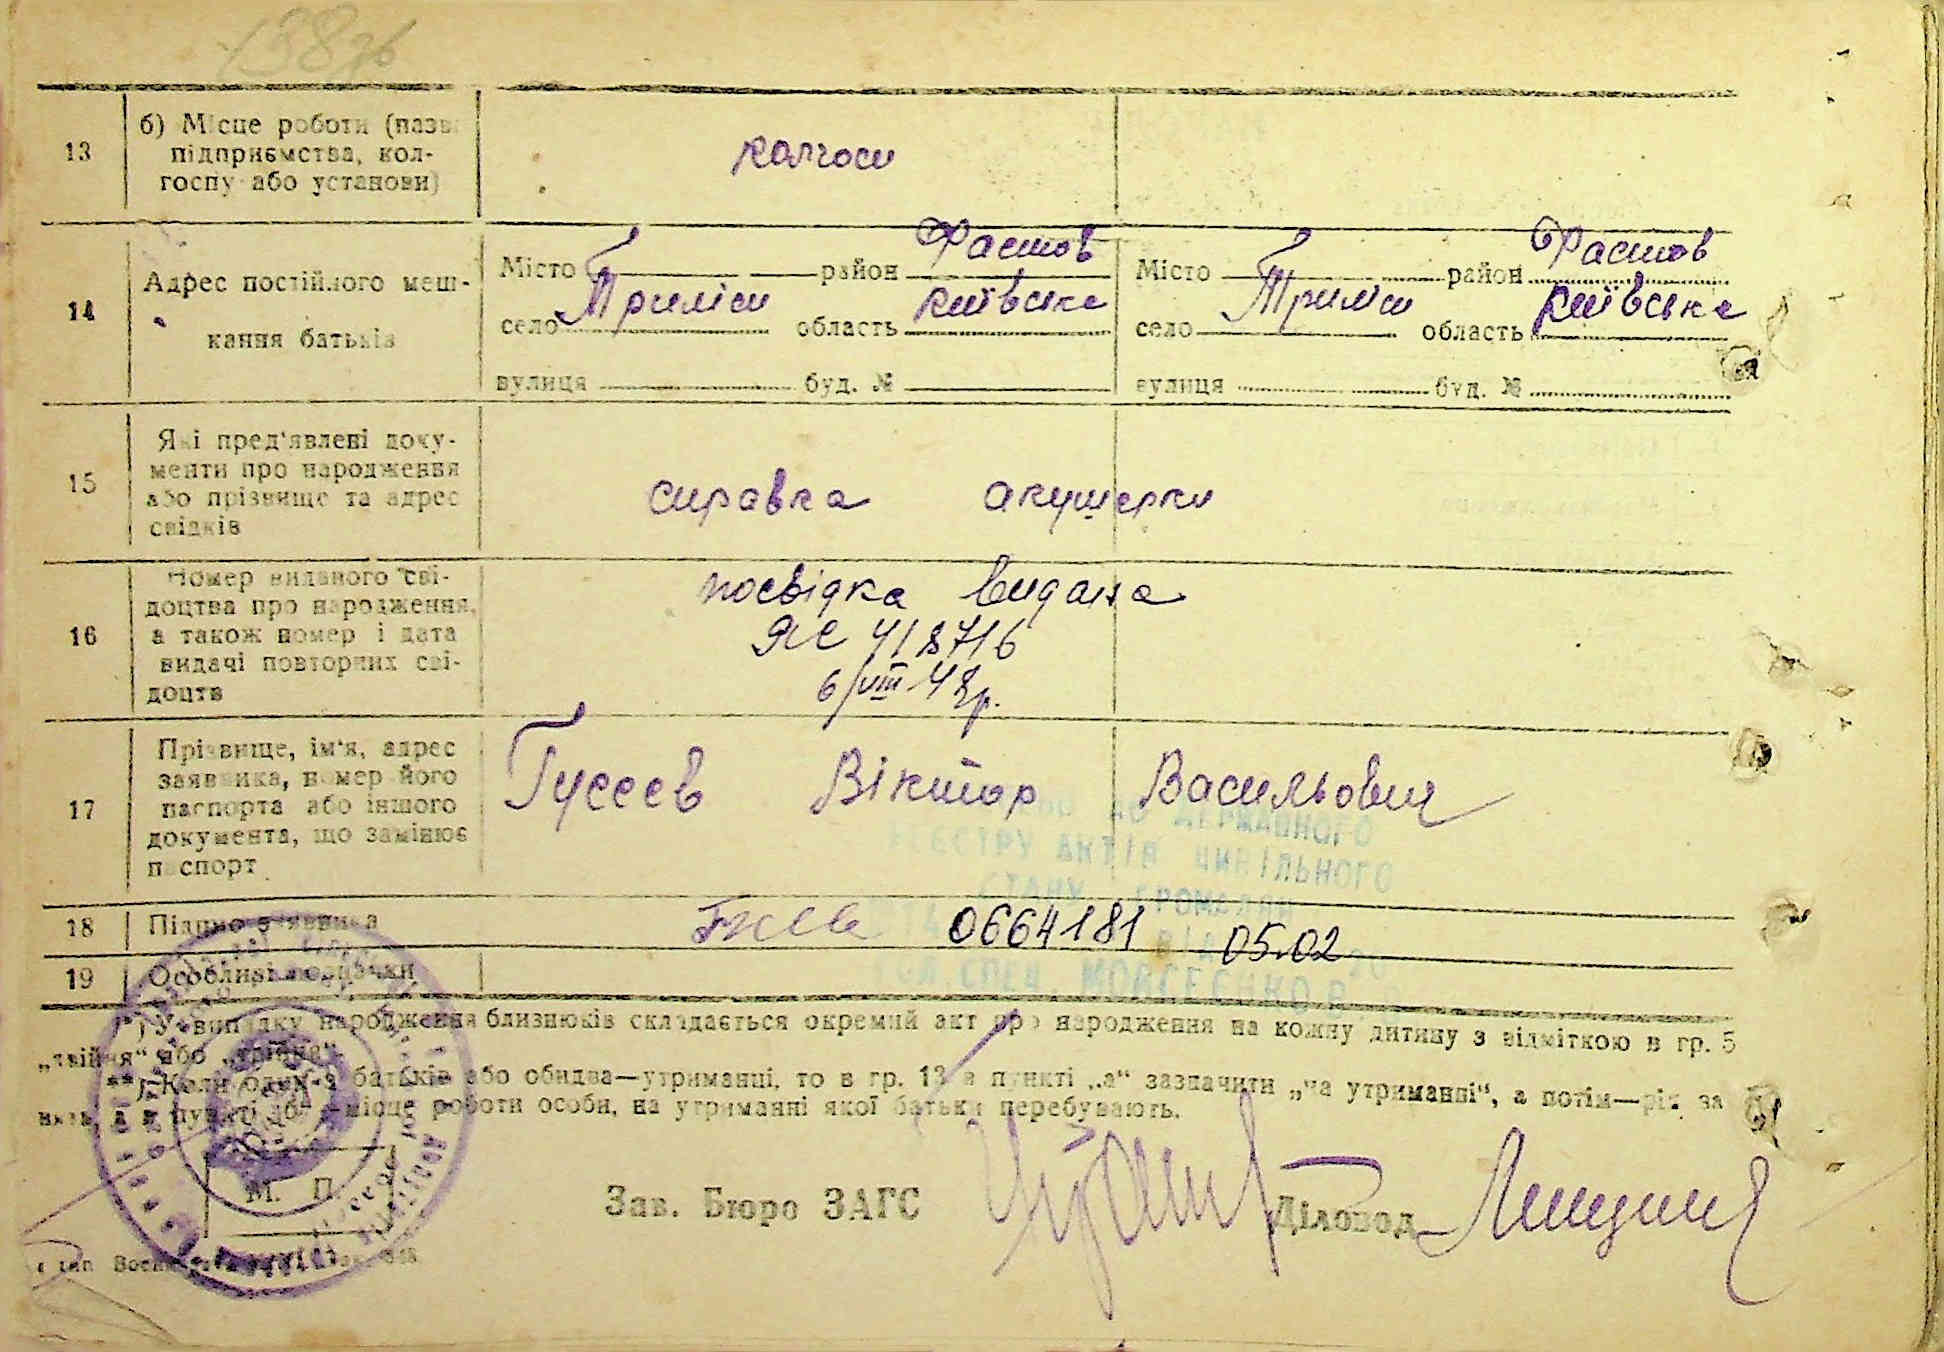 138зв
13
б) Місце роботи (назва
підприємства, кол-
госпу або установи)
колгосп
14
Адрес постійного меш-
кання батьків
Місто район Фастов
село Триліси область Київська
вулиця буд. №
Місто район Фастов
село Триліси область Київська
вулиця буд. №
15
Які пред'явлені доку-
менти про народження
або прізвище та адрес
свідків
справка акушерки
16
Номер виданого сві-
доцтва про народження,
а також номер і дата
видачі повторних сві-
доцтв
посвідка видана
ЯС 418716
6/VIII 48р.
17
Прізвище, ім'я, адрес
заявника, номер його
паспорта або іншого
документа, що замінює
паспорт
Гусєєв Віктор Васильович
ДО ДЕРЖАВНОГО
РЕЄСТРУ АКТІВ ЦИВІЛЬНОГО
СТАНУ ГРОМАДЯН
18
Підпис заявника
0664181 05.02
19
Особливі позначки
ГОЛ. СПЕЦ. МОЙСЕЄНКО
*) У випадку народження близнюків складається окремий акт про народження на кожну дитину з відміткою в гр. 5
„двійня" або „трійня".
**) Коли один з батьків або обидва—утриманці, то в гр. 13 в пункті „а" зазначити „на утриманні", а потім—рід за
нять, а в пункті „б"—місце роботи особи, на утриманні якої батьки перебувають.
М. П.
Зав. Бюро ЗАГС
Діловод